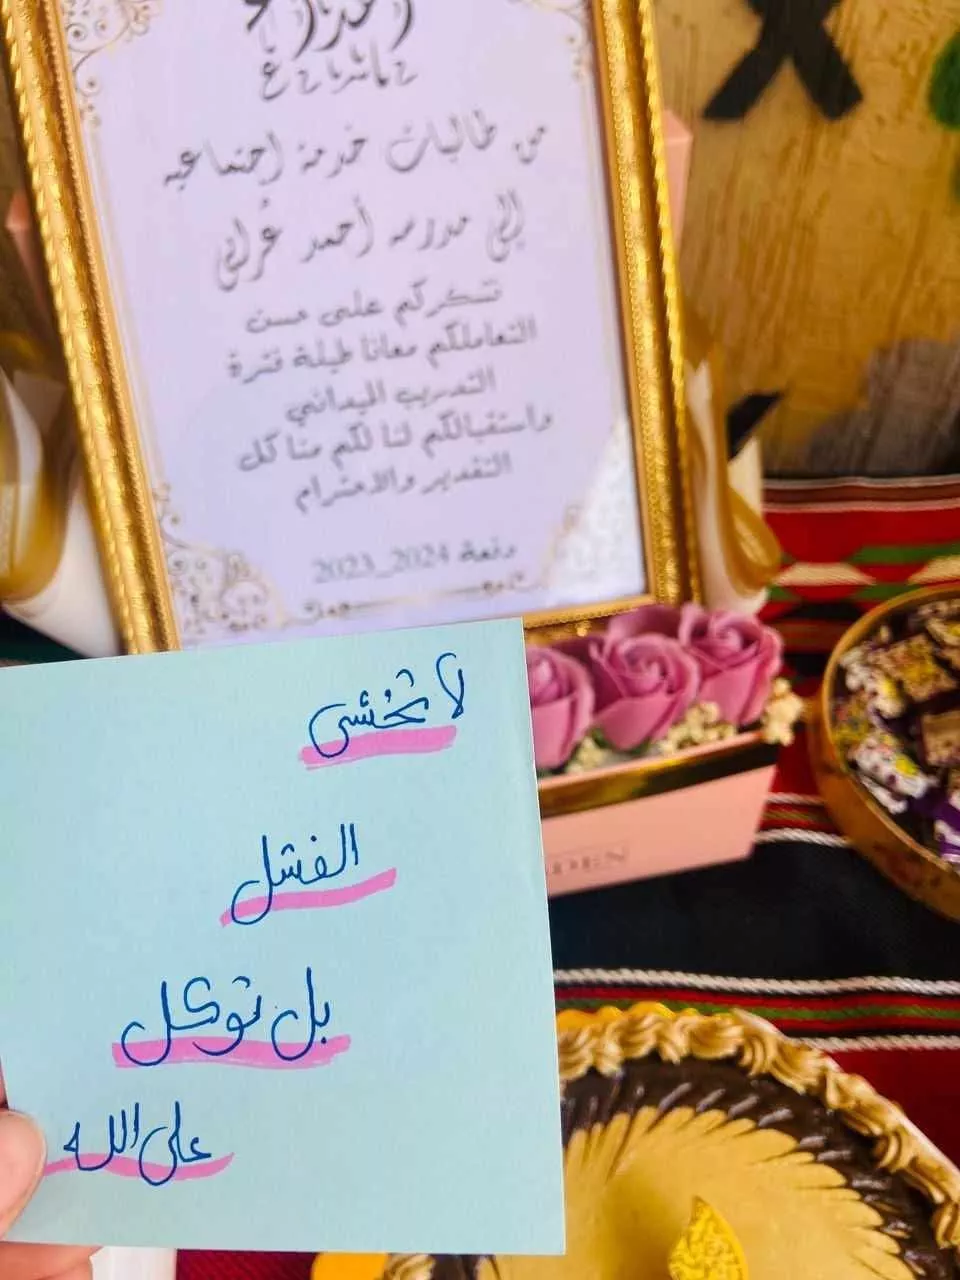 من طالبات خدمة إجتماعيه
إلى مدرسه أحمد عُرابي
نشكركم على حسن
التعاملكم معانا طيلة فترة
التدريب الميداني
واستقبالكم لنا لكم منا كل
التقدير والاحترام
دفعة 2024_2023
لا تخشى
الفشل
بل توكل
على الله